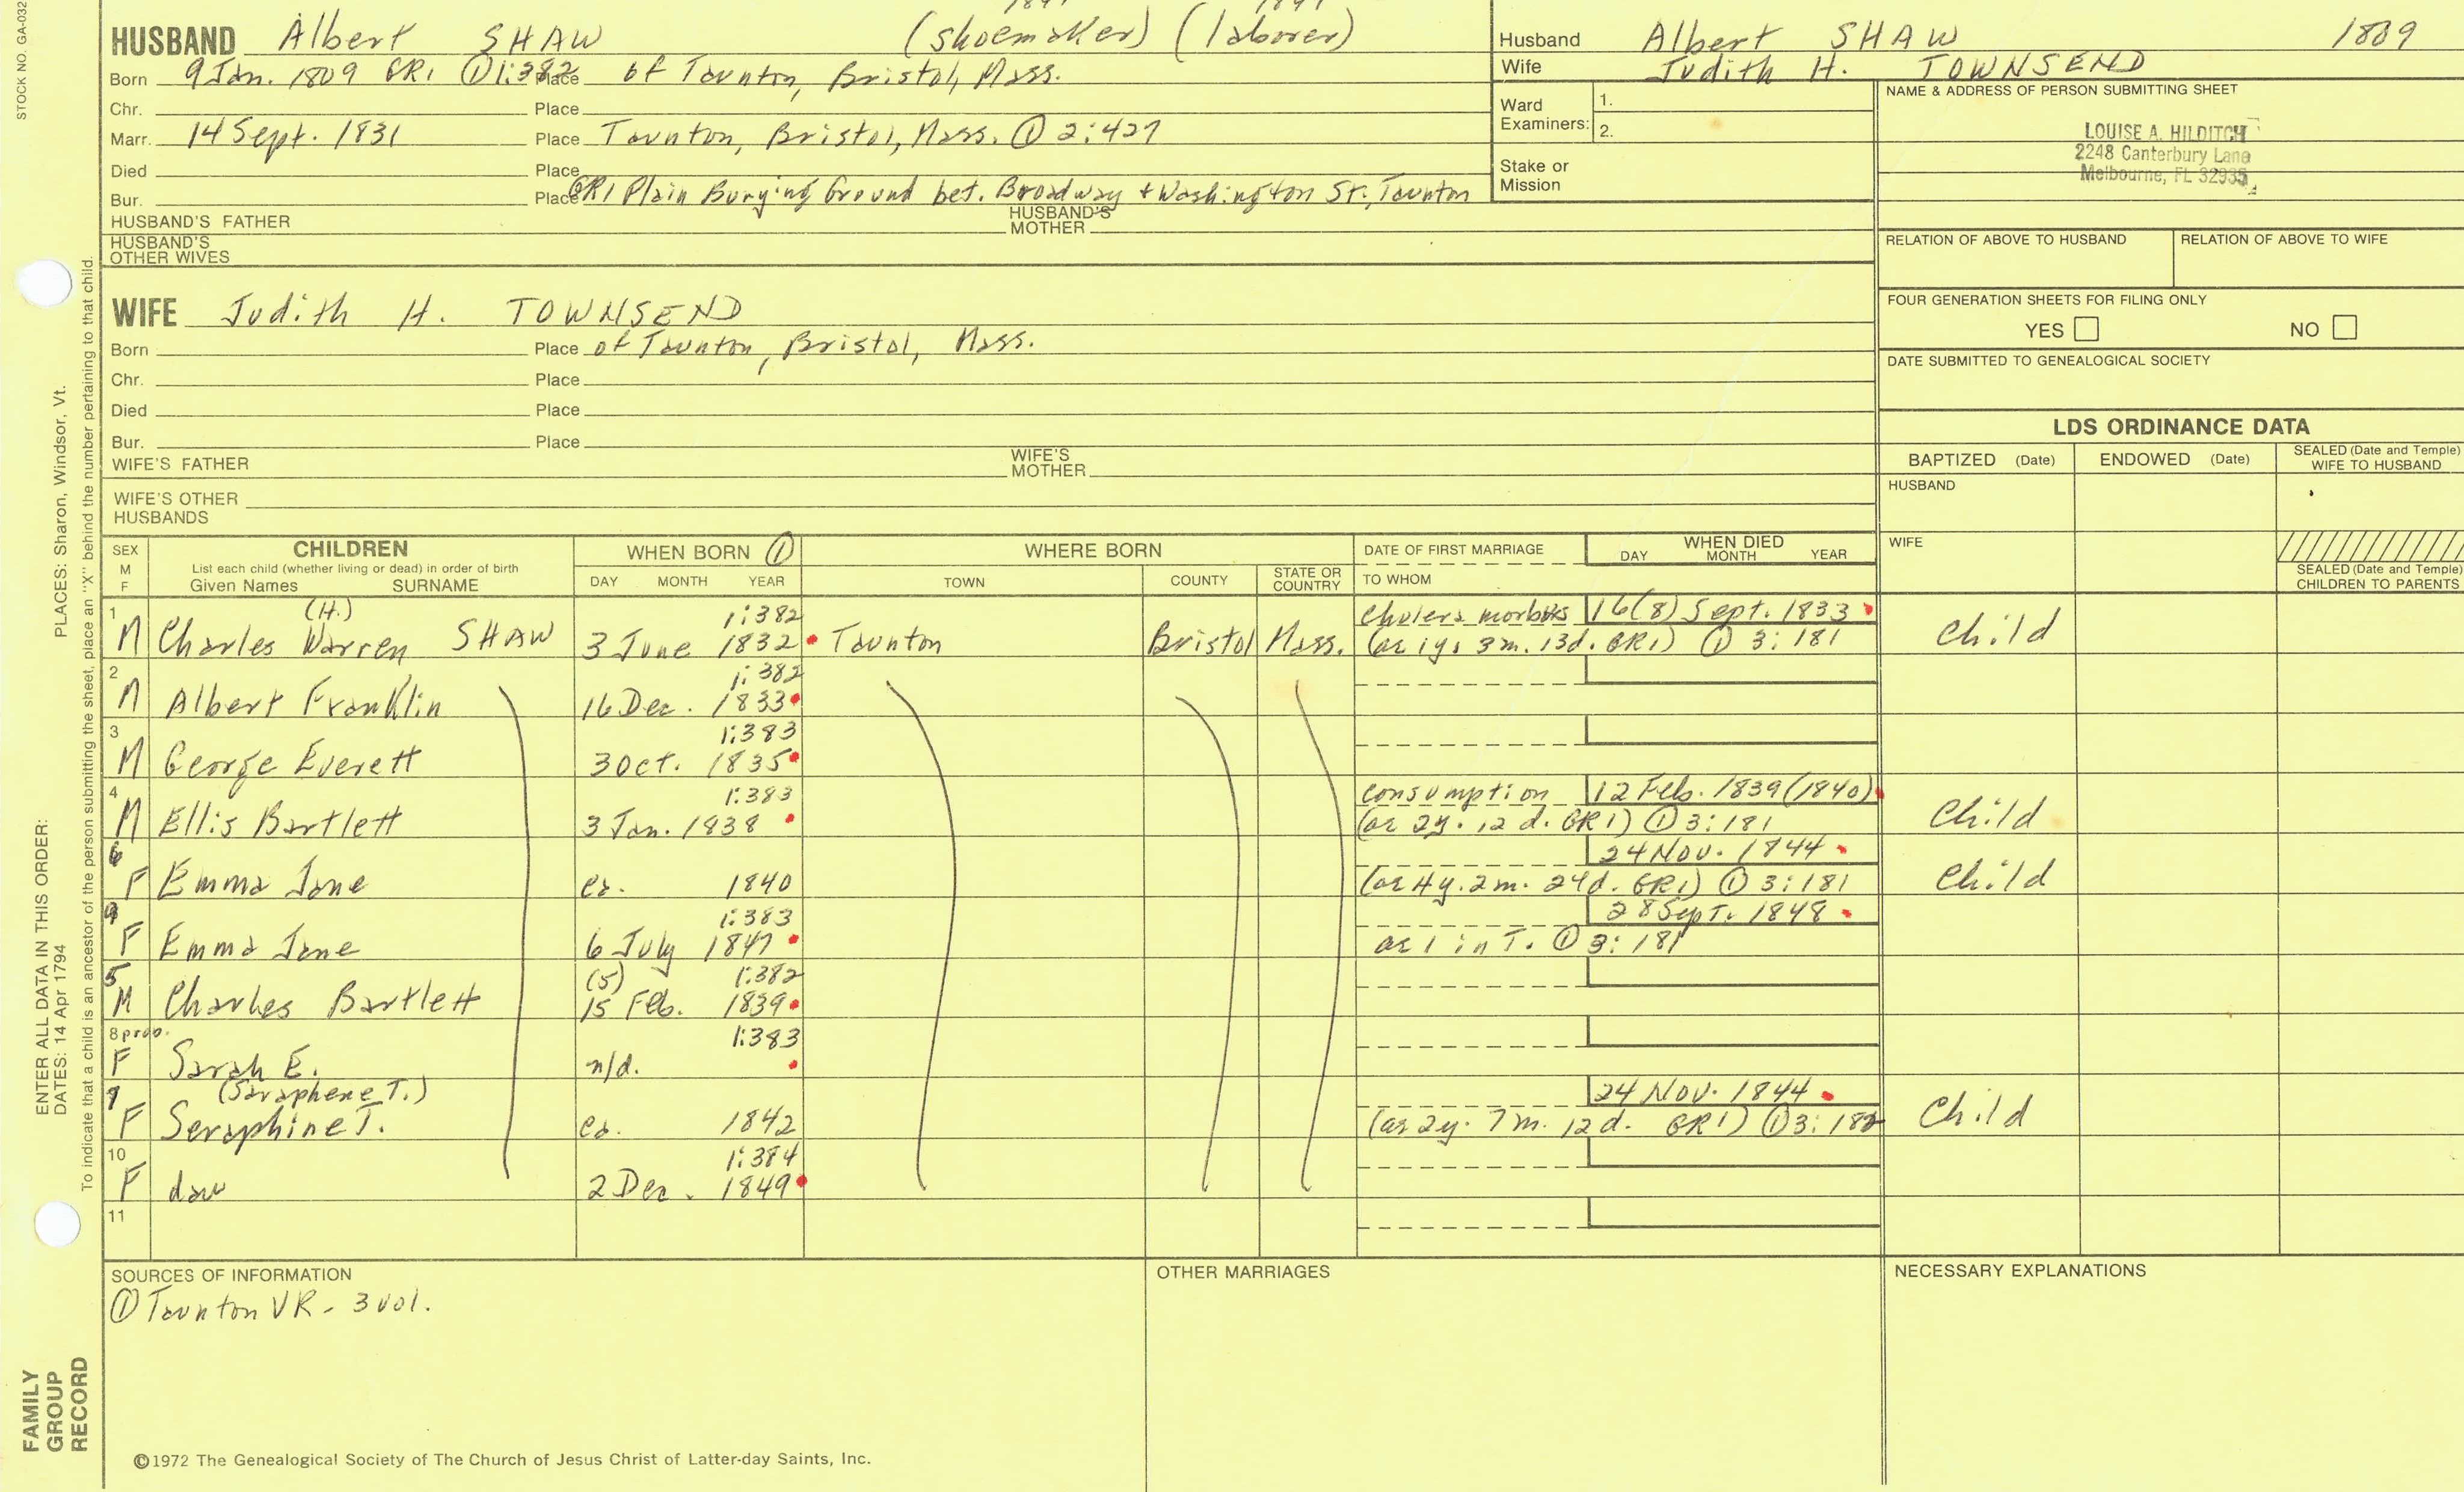 STOCK NO. GA-032
HUSBAND Albert SHAW (shoemaker) (laborer)
Born 9 Jan. 1809 GR1 ① 1:382 Place of Taunton, Bristol, Mass.
Chr. Place
Marr. 14 Sept. 1831 Place Taunton, Bristol, Mass. ① 2:427
Died Place
Bur. Place GR1 Plain Burying Ground bet. Broadway + Washington St., Taunton
HUSBAND'S FATHER HUSBAND'S MOTHER
HUSBAND'S OTHER WIVES
Husband Albert SHAW 1809
Wife Judith H. TOWNSEND
Ward Examiners: 1.
2.
Stake or Mission
NAME & ADDRESS OF PERSON SUBMITTING SHEET
LOUISE A. HILDITCH
2248 Canterbury Lane
Melbourne, FL 32935
RELATION OF ABOVE TO HUSBAND RELATION OF ABOVE TO WIFE
FOUR GENERATION SHEETS FOR FILING ONLY
YES NO
DATE SUBMITTED TO GENEALOGICAL SOCIETY
WIFE Judith H. TOWNSEND
Born Place of Taunton, Bristol, Mass.
Chr. Place
Died Place
Bur. Place
WIFE'S FATHER WIFE'S MOTHER
WIFE'S OTHER HUSBANDS
LDS ORDINANCE DATA
BAPTIZED (Date) ENDOWED (Date) SEALED (Date and Temple) WIFE TO HUSBAND
HUSBAND
WIFE
SEALED (Date and Temple) CHILDREN TO PARENTS
SEX M F
CHILDREN
List each child (whether living or dead) in order of birth
Given Names SURNAME
WHEN BORN ①
DAY MONTH YEAR
WHERE BORN
TOWN COUNTY STATE OR COUNTRY
DATE OF FIRST MARRIAGE
TO WHOM
WHEN DIED
DAY MONTH YEAR
1 (H.) 1:382 Cholera morbus 16(8) Sept. 1833
M Charles Warren SHAW 3 June 1832 Taunton Bristol Mass. (ae 1y. 3m. 13d. GR1) ① 3:181 Child
2 1:382
M Albert Franklin 16 Dec. 1833
3 1:383
M George Everett 3 Oct. 1835
4 1:383 consumption 12 Feb. 1839 (1840)
M Ellis Bartlett 3 Jan. 1838 (ae 2y. 12d. GR1) ① 3:181 Child
6 24 Nov. 1844
F Emma Jane ca. 1840 (ae 4y. 2m. 24d. GR1) ① 3:181 Child
9 1:383 28 Sept. 1848
F Emma Jane 6 July 1847 ae 1 in T. ① 3:181
5 (5) 1:382
M Charles Bartlett 15 Feb. 1839
8 prob. 1:383
F Sarah E. n/d.
7 (Saraphene T.) 24 Nov. 1844
F Seraphine T. ca. 1842 (ae 2y. 7m. 12d. GR1) ① 3:182 Child
10 1:384
F dau 2 Dec. 1849
11
SOURCES OF INFORMATION
① Taunton VR - 3 vol.
OTHER MARRIAGES
NECESSARY EXPLANATIONS
ENTER ALL DATA IN THIS ORDER:
DATES: 14 Apr 1794
PLACES: Sharon, Windsor, Vt.
To indicate that a child is an ancestor of the person submitting the sheet, place an "X" behind the number pertaining to that child.
FAMILY GROUP RECORD
©1972 The Genealogical Society of The Church of Jesus Christ of Latter-day Saints, Inc.